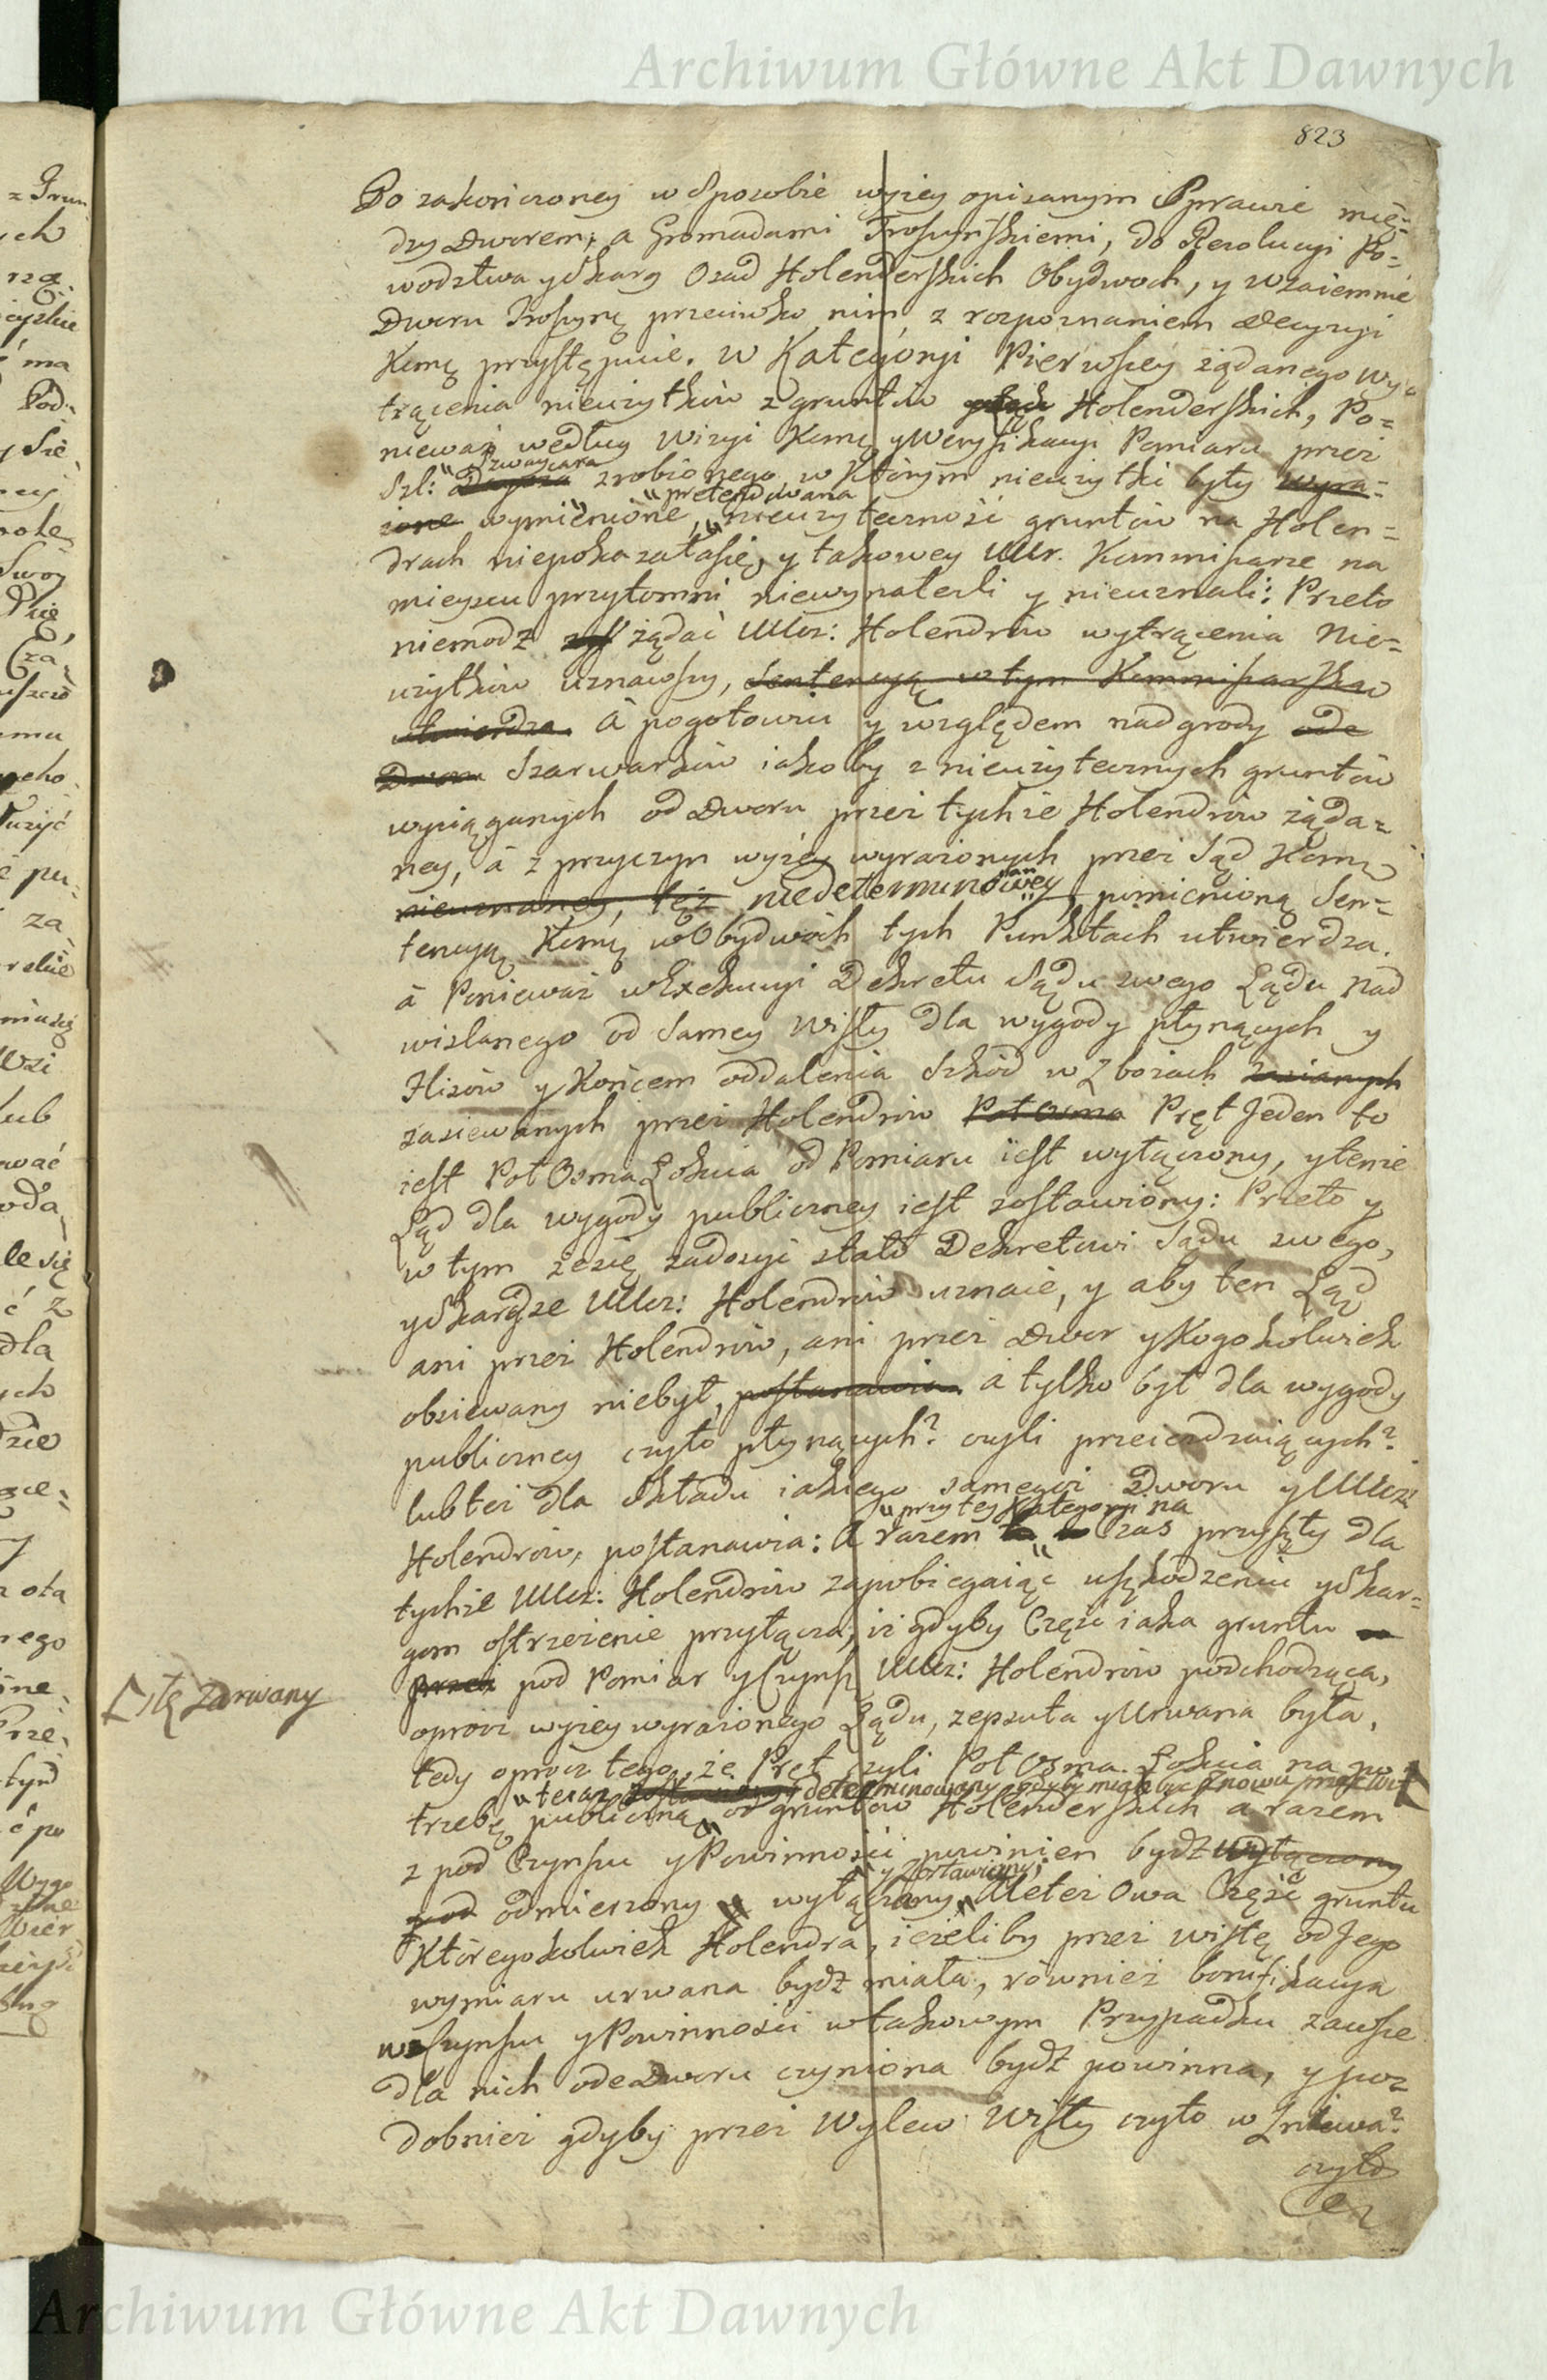 Archiwum Główne Akt Dawnych
823
Po zakończoney w Sposobie wyżey opisanym Sprawie mię=
dzy Dworem, a Gromadami Troszyńskiemi, do Rezolucyi Po=
wodztwa y Skarg Osad Holenderskich Obydwoch, y wzaiemnie
Dworu Troszyną przeciwko nim z rozpoznaniem Decyzyi
Kommę przystępuie. W Kategoryi Pierwszey żądanego wy=
trącenia nieużytków z gruntów Holenderskich, Po=
nieważ według Wizyi Kommę y Weryfikacyi Pomiaru przez
Szl: Szwaycara zrobionego, w którym nieużytki były wyra=
żone wymienione, pretendowana nieużyteczność gruntów na Holen=
drach niepokazałasię, y takowey UUr. Kommisarze na
mieyscu przytomni niewynaleźli y nieuznali: Przeto
niemodz żądać UUcz: Holendrów wytrącenia Nie=
użytków uznawszy, Sentencyą w tym Kommisarską
utwierdza. à pogotowiu y względem nadgrody ode
Dworu Szarwarków iakoby z nieużytecznych gruntów
wyciąganych od Dworu przez tychże Holendrów żąda=
ney, à z przyczyn wyżey wyrażonych przez Sąd Kommę
nieuznaney, też niedeterminowaney, pomienioną Sen=
tencyą Kommę w Obydwóch tych Punktach utwierdza.
à Ponieważ w Exekucyi Dekretu Sądu swego Lądu Nad
wislanego od Samey Wisły dla wygody płynących y
Flisów y Końcem oddalenia Szkód w Zbożach zasianych
zasiewanych przez Holendrów Poł Osma Pręt Jeden to
iest Poł Osma Łokcia od Pomiaru iest wyłączony, y tenże
Ląd dla wygody publiczney iest zostawiony: Przeto y
w tym żesię zadosyć stało Dekretowi Sądu swego,
y Skardze UUcz: Holendrów uznaie, y aby ten Ląd
ani przez Holendrów, ani przez Dwor y Kogokolwiek
obsiewany niebył, postanawia à tylko był dla wygody
publiczney czyto płynących? czyli przeieżdzaiących?
lubteż dla składu iakiego samegoż Dworu y UUcz:
Holendrów, postanawia: A razem przy tey Kategoryi na Czas przyszły dla
tychże UUcz: Holendrów zapobiegaiąc uszkodzeniu y Skar=
gom ostrzeżenie przyłącza, iż gdyby Część iaka gruntu
przez pod Pomiar y Czynsz UUcz: Holendrów podchodząca,
Lstę zarwany
oprócz wyżey wyrażonego Lądu, zepsuta y Urwana była,
tedy oprócz tego, że Pręt czyli Poł Osma Łokcia na po=
teraz determinowany gdyby miał być znowu przez Wisłę
trzebę publiczną od gruntów Holenderskich a razem
z pod Czynszu y Powinności powinien bydź wyłączony
pod odmierzony wyłączony y zostawiony; Aleteż Owa Część gruntu
Któregokolwiek Holendra, ieżeliby przez Wisłę od Jego
wymiaru urwana bydź miała, również bonifikacya
w Czynszu y Powinności w takowym Przypadku zawsze
dla nich ode Dworu czyniona bydź powinna, y po=
dobnież gdyby przez Wylew Wisły czyto w Zniwa?
czyto
Archiwum Główne Akt Dawnych